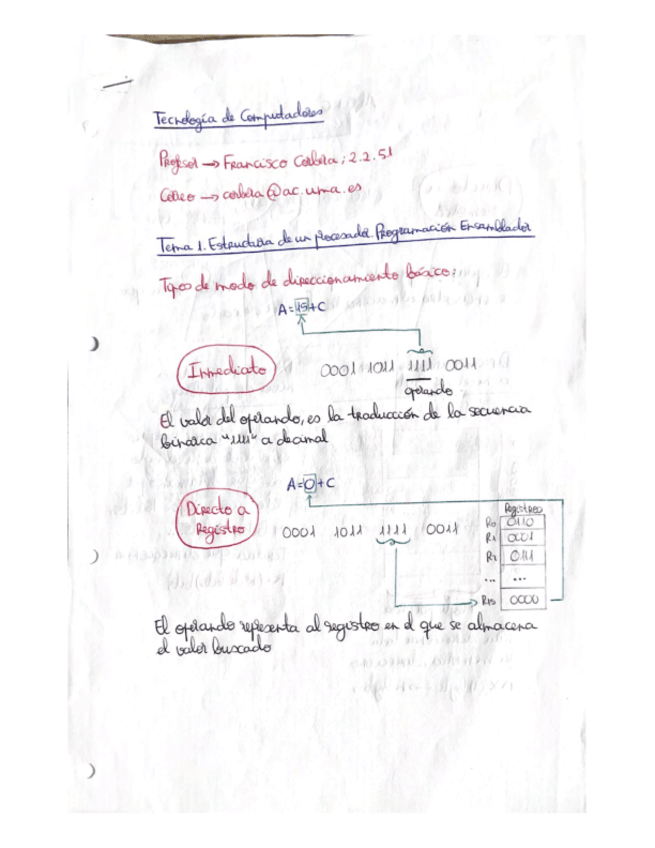 Tecnología de Computadores
Profesor → Francisco Corbera; 2.2.51
Correo → corbera@ac.uma.es
Tema 1. Estructura de un procesador. Programación Ensamblador
Tipos de modo de direccionamiento básico:
A=15+C
Inmediato
0001 1011 1111 0011
operando
El valor del operando, es la traducción de la secuencia
binarica "1111" a decimal
A=0+C
Directo a
Registro
0001 1011 1111 0011
Registros
R0 0110
R1 0001
R2 0111
... ...
R15 0000
El operando representa al registro en el que se almacena
el valor buscado